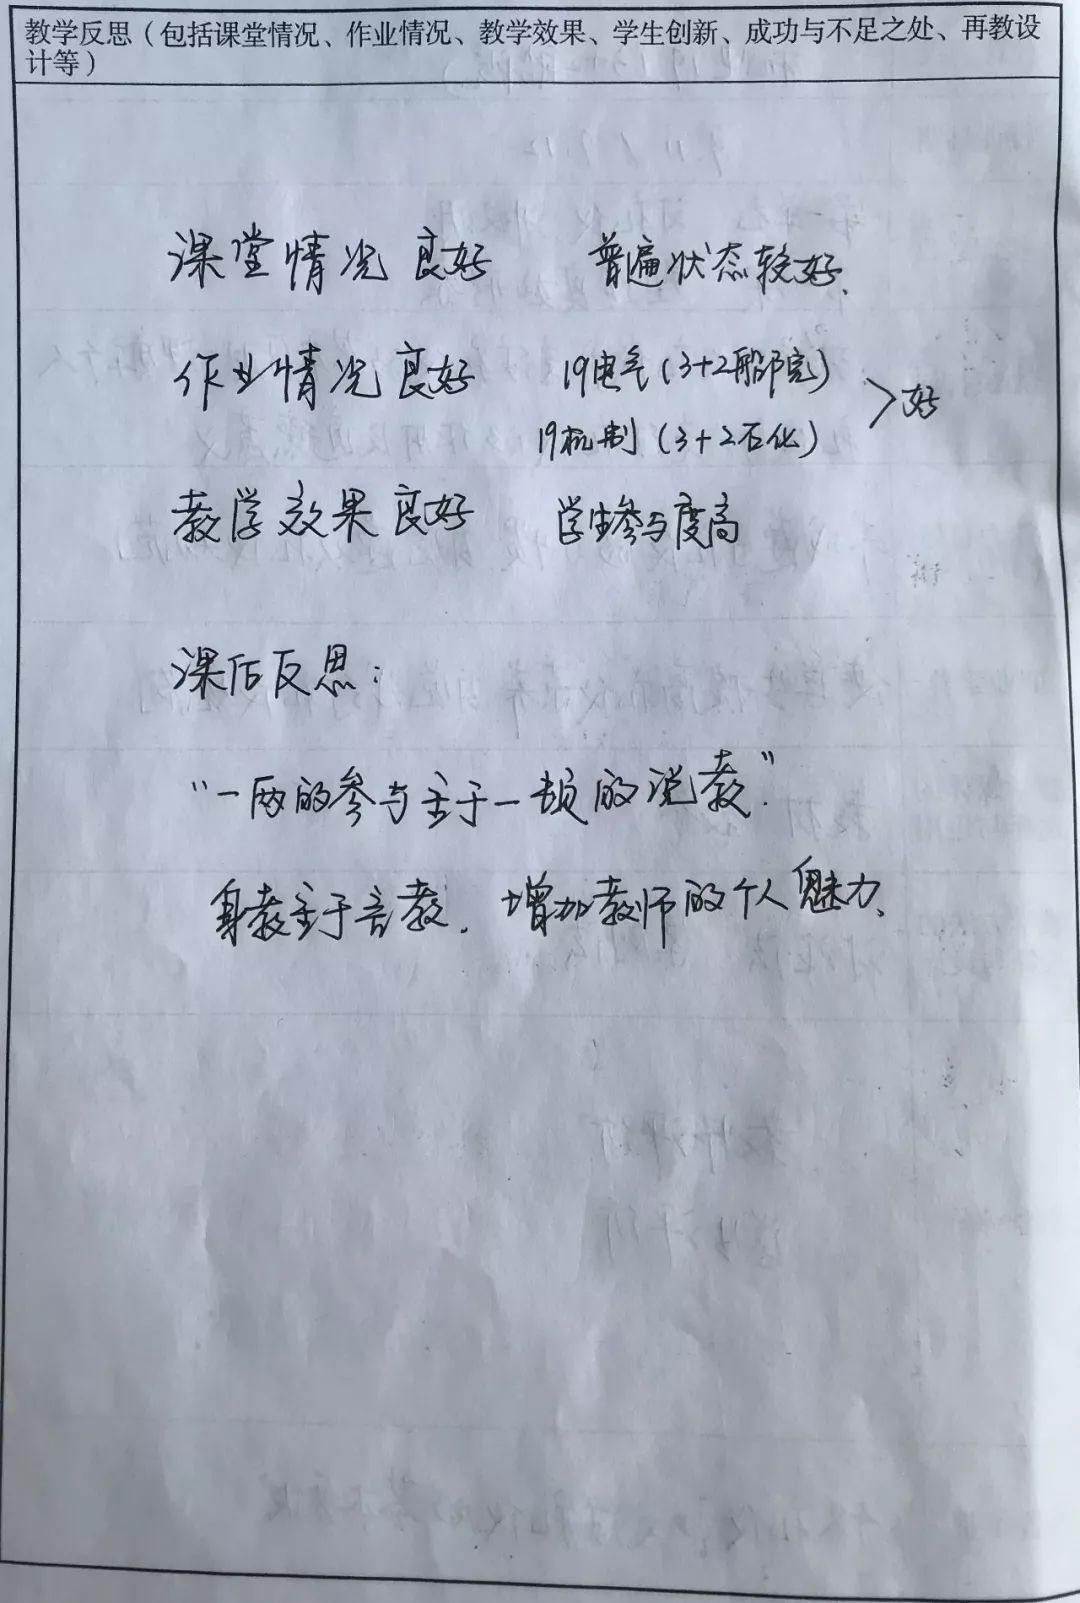 教学反思（包括课堂情况、作业情况、教学效果、学生创新、成功与不足之处、再教设
计等）
课堂情况良好 普遍状态较好、
作业情况良好 19电气(3+2船院)
19机制(3+2石化) >好
教学效果良好 学生参与度高
课后反思：
“一两的参与主于一顿的说教”.
身教主于言教. 增加教师的个人魅力、